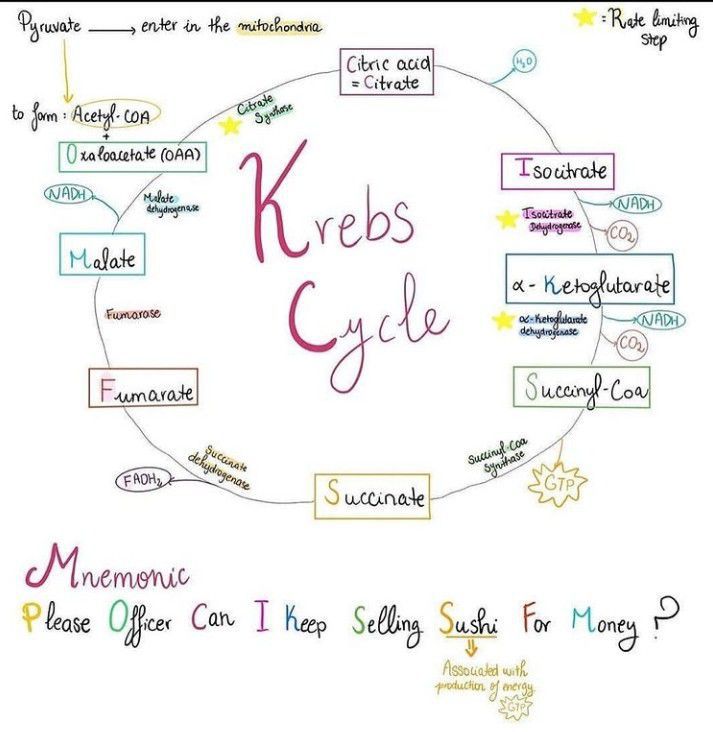 Pyruvate → enter in the mitochondria
★ = Rate limiting
step
to form : Acetyl-COA
+
Oxaloacetate (OAA)
Citrate
Synthase
Citric acid
= Citrate
H₂O
Isocitrate
NADH
Isocitrate
Dehydrogenase
CO₂
α - Ketoglutarate
α-Ketoglutarate
dehydrogenase
NADH
CO₂
Succinyl-Coa
Succinyl-Coa
Synthase
GTP
Succinate
Succinate
dehydrogenase
FADH₂
Fumarate
Fumarase
Malate
Malate
dehydrogenase
NADH
Krebs
Cycle
Mnemonic
Please Officer Can I Keep Selling Sushi For Money ?
Associated with
production of energy
GTP